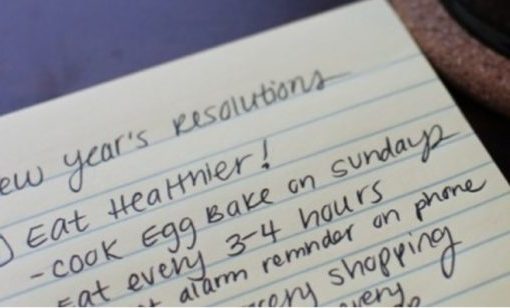 ew year's Resolutions
Eat Healthier!
- cook Egg Bake on sundays
Eat every 3-4 hours
alarm reminder on phone
shopping